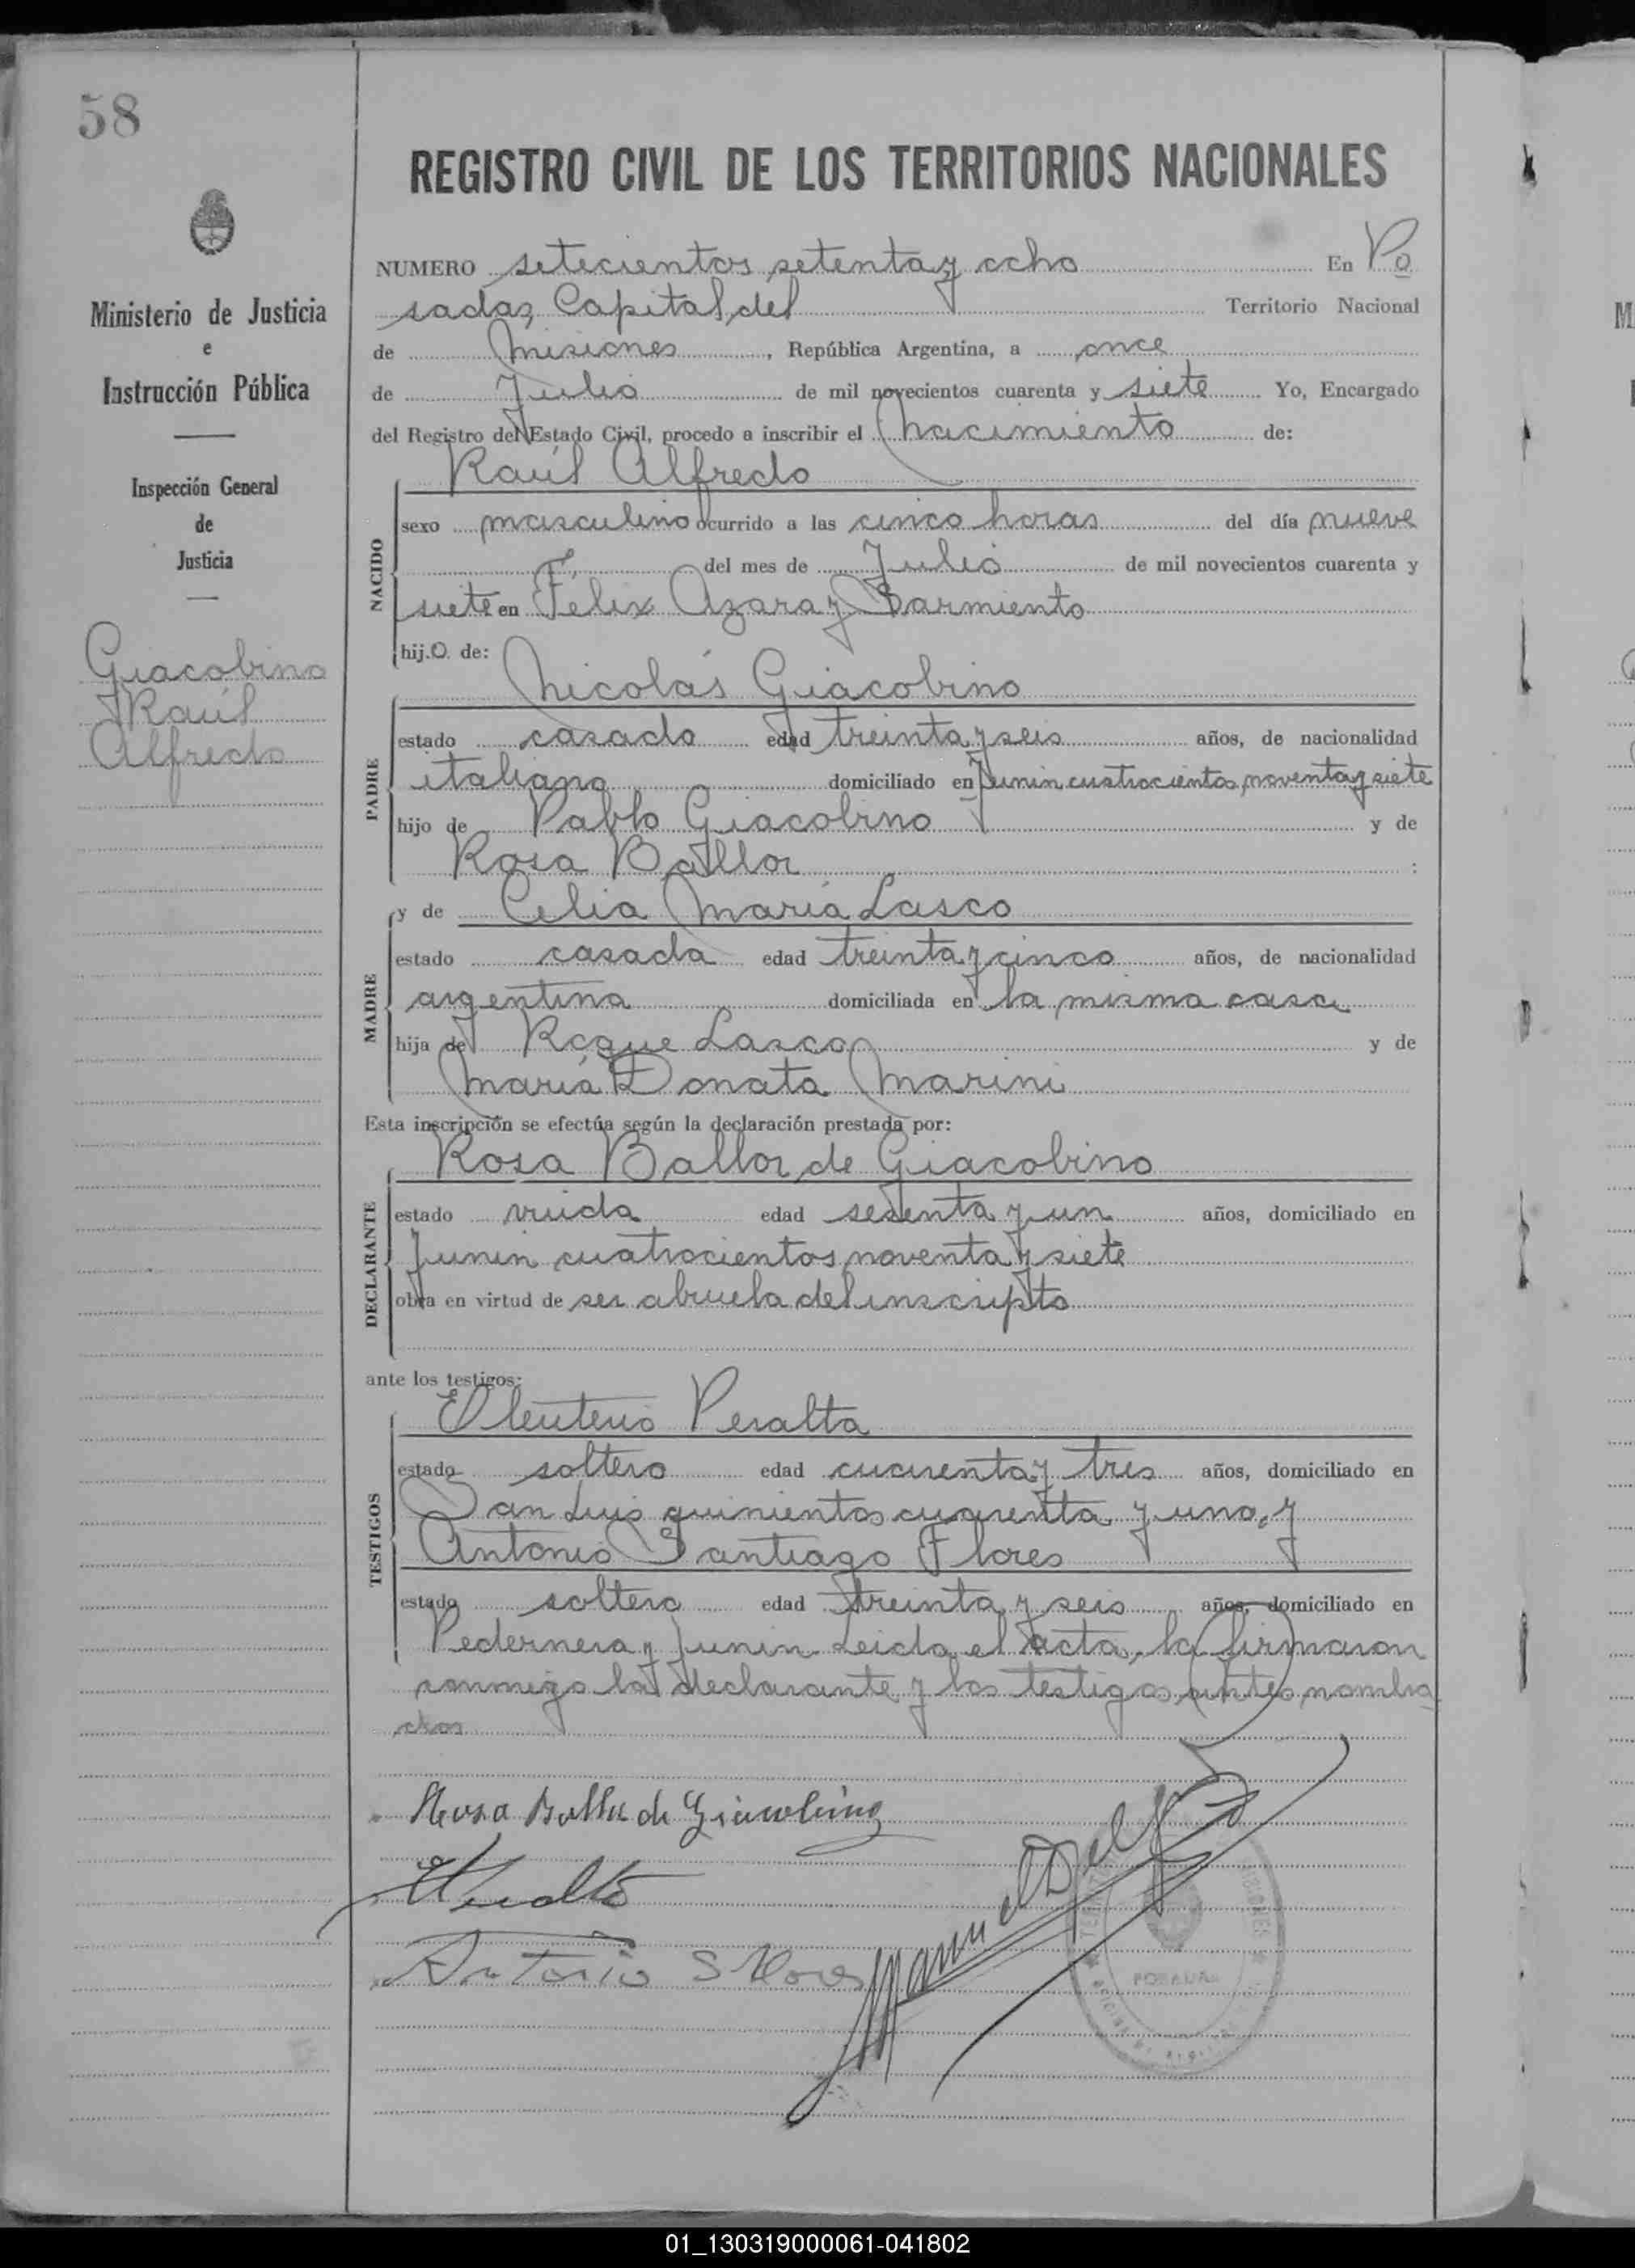 58
REGISTRO CIVIL DE LOS TERRITORIOS NACIONALES
Ministerio de Justicia
e
Instrucción Pública
Inspección General
de
Justicia
Giacobino
Raúl
Alfredo
NUMERO setecientos setenta y ocho En Po
sadas, Capital del Territorio Nacional
de Misiones, República Argentina, a once
de Julio de mil novecientos cuarenta y siete Yo, Encargado
del Registro del Estado Civil, procedo a inscribir el nacimiento de:
Raúl Alfredo
NACIDO
sexo masculino ocurrido a las cinco horas del día nueve
del mes de Julio de mil novecientos cuarenta y
siete en Félix Azara y Sarmiento
hij.o. de:
Nicolás Giacobino
PADRE
estado casado edad treinta y seis años, de nacionalidad
italiano domiciliado en Junin cuatrocientos noventa y siete
hijo de Pablo Giacobino y de
Rosa Ballor :
y de Celia María Lasco
MADRE
estado casada edad treinta y cinco años, de nacionalidad
argentina domiciliada en la misma casa
hija de Roque Lasco y de
María Donata Marini
Esta inscripción se efectúa según la declaración prestada por:
Rosa Ballor de Giacobino
DECLARANTE
estado viuda edad años, domiciliado en
Junin cuatrocientos noventa y siete
obra en virtud de ser abuela del inscripto
ante los testigos:
Eleuterio Peralta
TESTIGOS
estado soltero edad cuarenta y tres años, domiciliado en
San Luis quinientos cuarenta y uno, y
Antonio Santiago Flores
estado soltero edad treinta y seis años, domiciliado en
Pedernera y Junin. Leida el acta, la firmaron
conmigo la declarante y los testigos antes nombra
dos
Rosa Ballor de Giacobino
Antonio S Flores
POSADAS
01_130319000061-041802